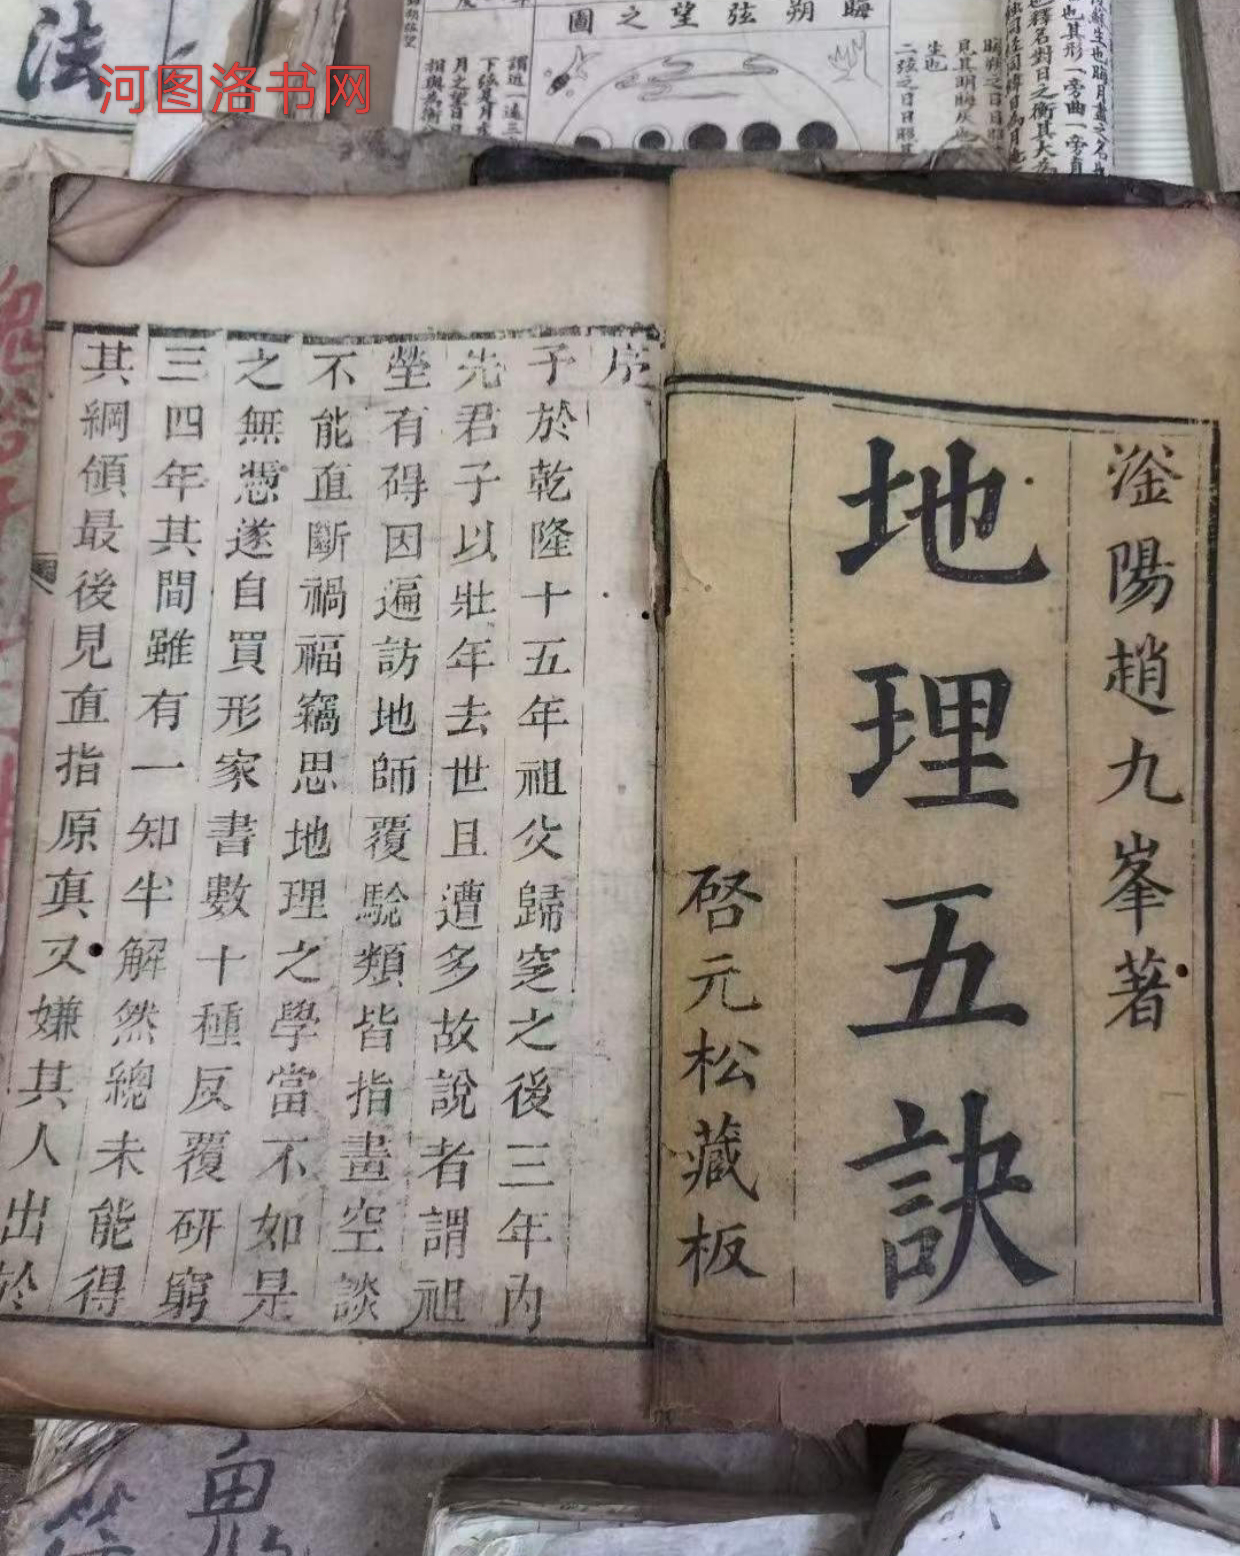 法
河图洛书网
晦朔弦望之圖
滏陽趙九峯著
地理五訣
啓元松藏板
序
予於乾隆十五年祖父歸窆之後三年內
先君子以壯年去世且遭多故說者謂祖
塋有碍因遍訪地師覆驗類皆指畫空談
不能直斷禍福竊思地理之學當不如是
之無憑遂自買形家書數十種反覆研窮
三四年其間雖有一知半解然總未能得
其綱領最後見直指原真又嫌其人出於